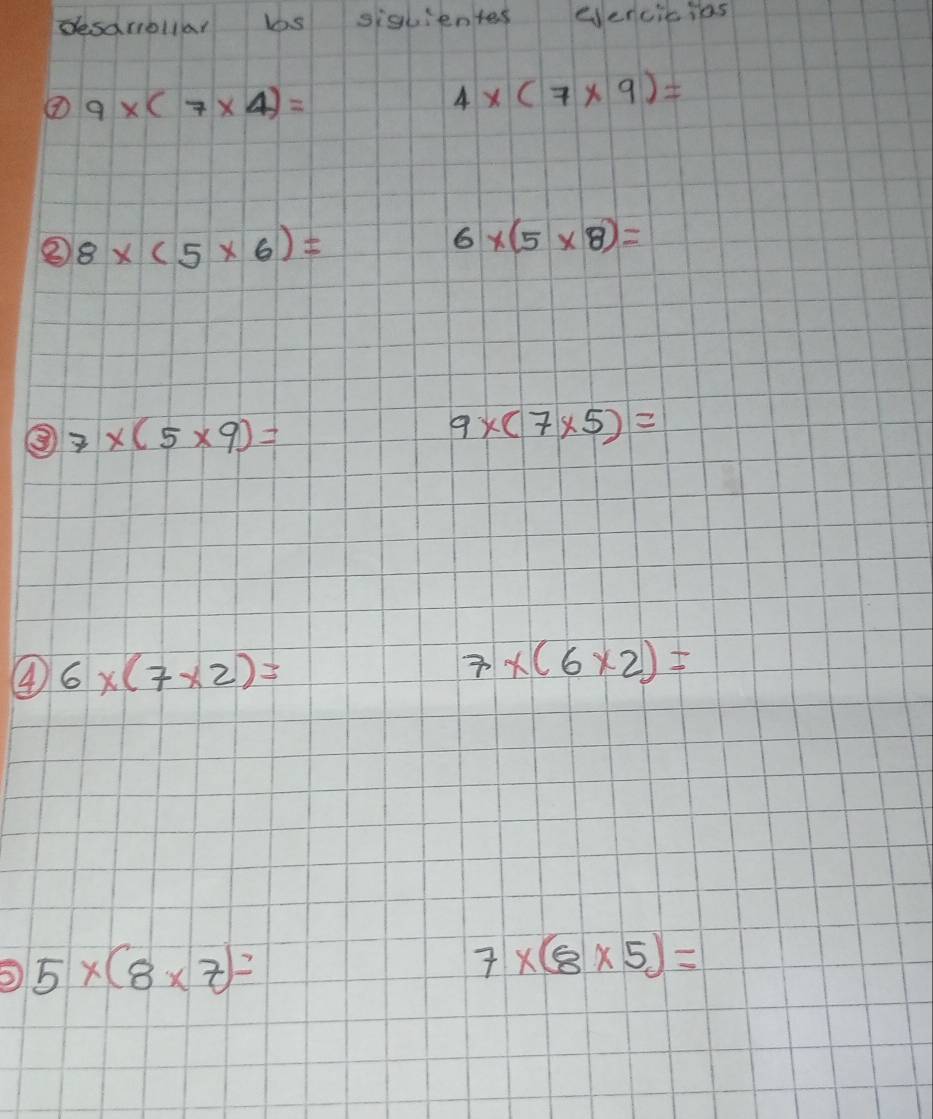 desarrollar los siguientes ejercicios
① 9 × ( 7 × 4 ) = 4 × ( 7 × 9 ) =
② 8 × ( 5 × 6 ) = 6 × ( 5 × 8 ) =
③ 7 × ( 5 × 9 ) = 9 × ( 7 × 5 ) =
④ 6 × ( 7 × 2 ) = 7 × ( 6 × 2 ) =
⑤ 5 × ( 8 × 7 ) = 7 × ( 8 × 5 ) =